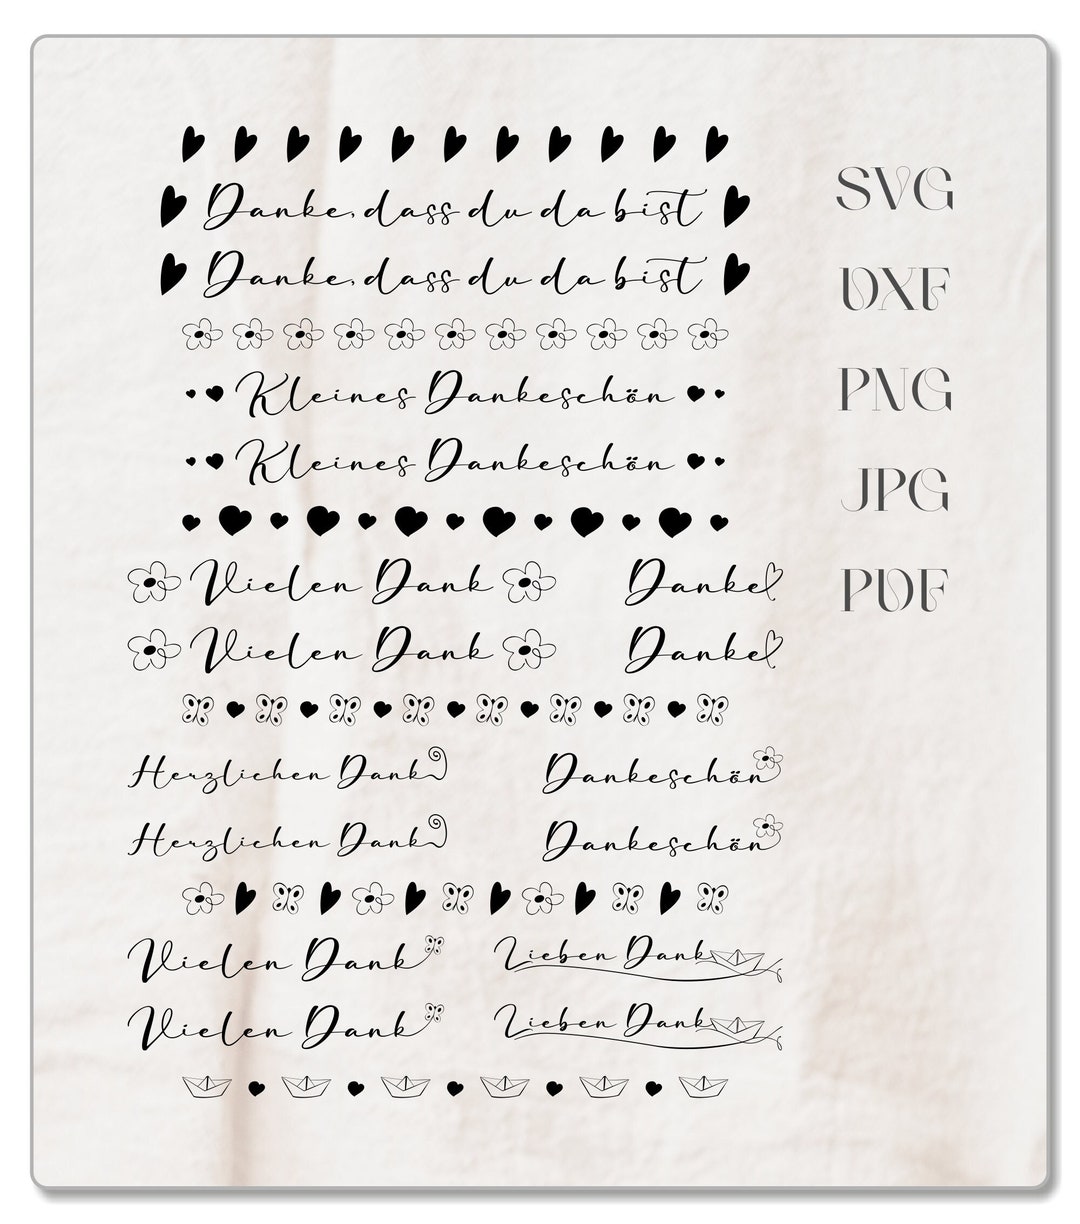 Danke, dass du da bist
Danke, dass du da bist
Kleines Dankeschön
Kleines Dankeschön
Vielen Dank Danke
Vielen Dank Danke
Herzlichen Dank Dankeschön
Herzlichen Dank Dankeschön
Vielen Dank Lieben Dank
Vielen Dank Lieben Dank
SVG
DXF
PNG
JPG
PDF